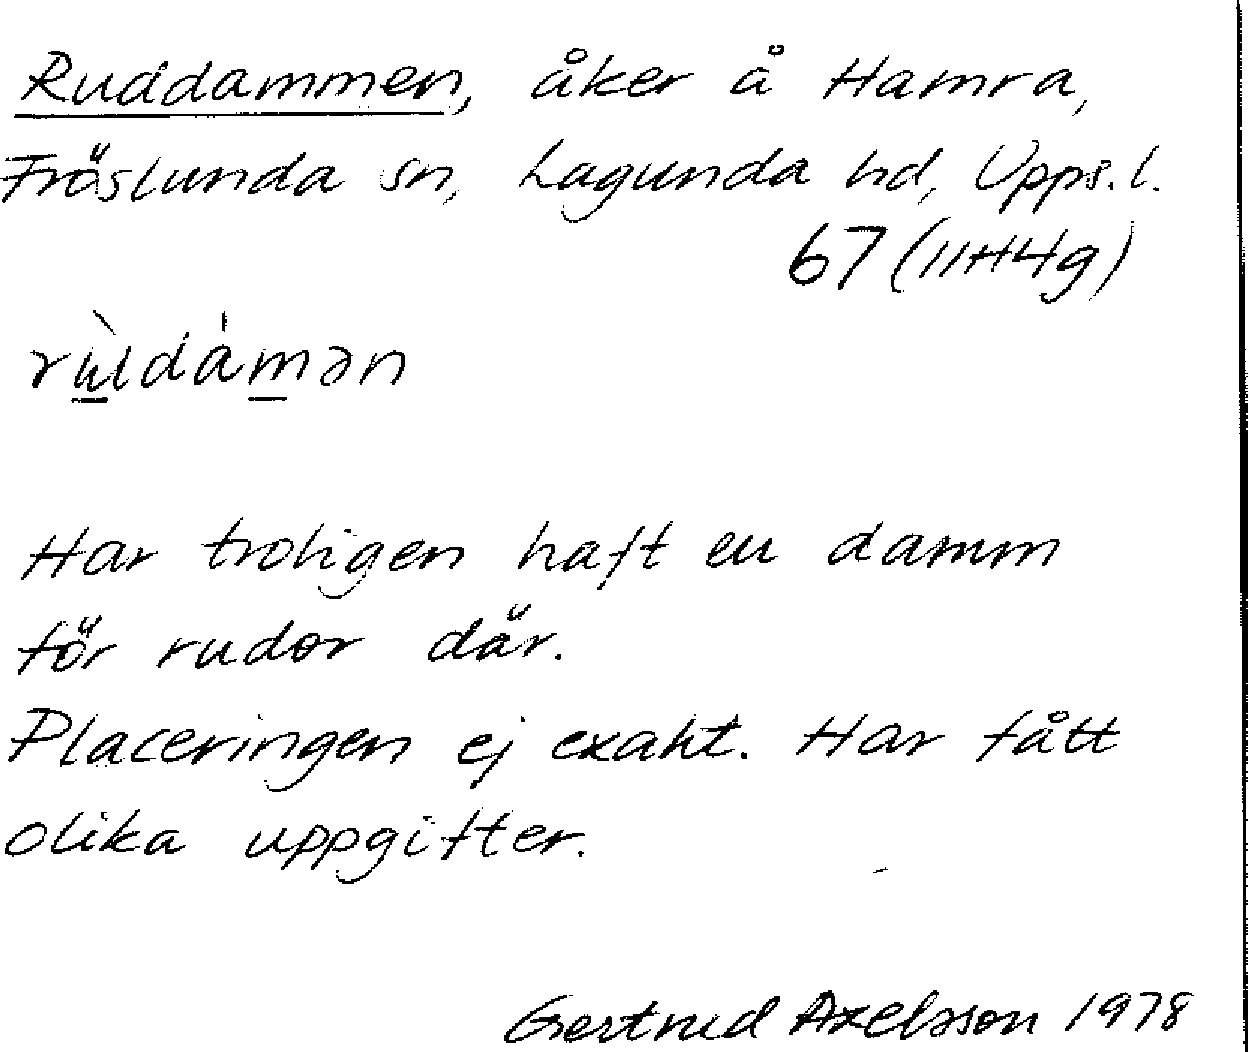 Ruddammen, åker å Hamra,
Fröslunda sn, Lagunda hd, Upps. l.
67 (11H4g)
Har troligen haft en damm
för rudor där.
Placeringen ej exakt. Har fått
olika uppgifter.
Gertrud Axelsson 1978